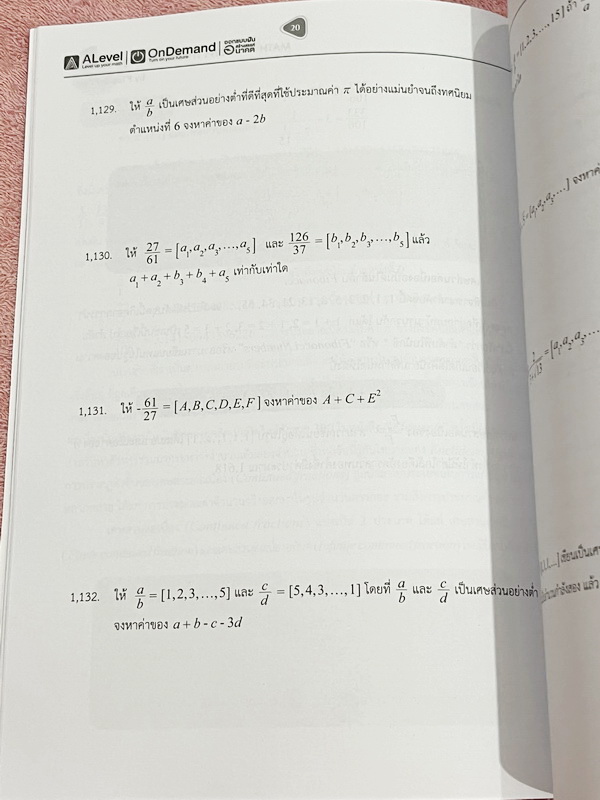 20
ALevel
Level up your math
OnDemand
Turn on your future
ออกแบบฝัน
อย่างแชมป์
อนาคต
1,129. ให้ a/b เป็นเศษส่วนอย่างต่ำที่ดีที่สุดที่ใช้ประมาณค่า π ได้อย่างแม่นยำจนถึงทศนิยม
ตำแหน่งที่ 6 จงหาค่าของ a - 2b
1,130. ให้ 27/61 = [a₁,a₂,a₃,...,a₅] และ 126/37 = [b₁,b₂,b₃,...,b₅] แล้ว
a₁ + a₂ + b₃ + b₄ + a₅ เท่ากับเท่าใด
1,131. ให้ -61/27 = [A,B,C,D,E,F] จงหาค่าของ A + C + E²
1,132. ให้ a/b = [1,2,3,...,5] และ c/d = [5,4,3,...,1] โดยที่ a/b และ c/d เป็นเศษส่วนอย่างต่ำ
จงหาค่าของ a + b - c - 3d